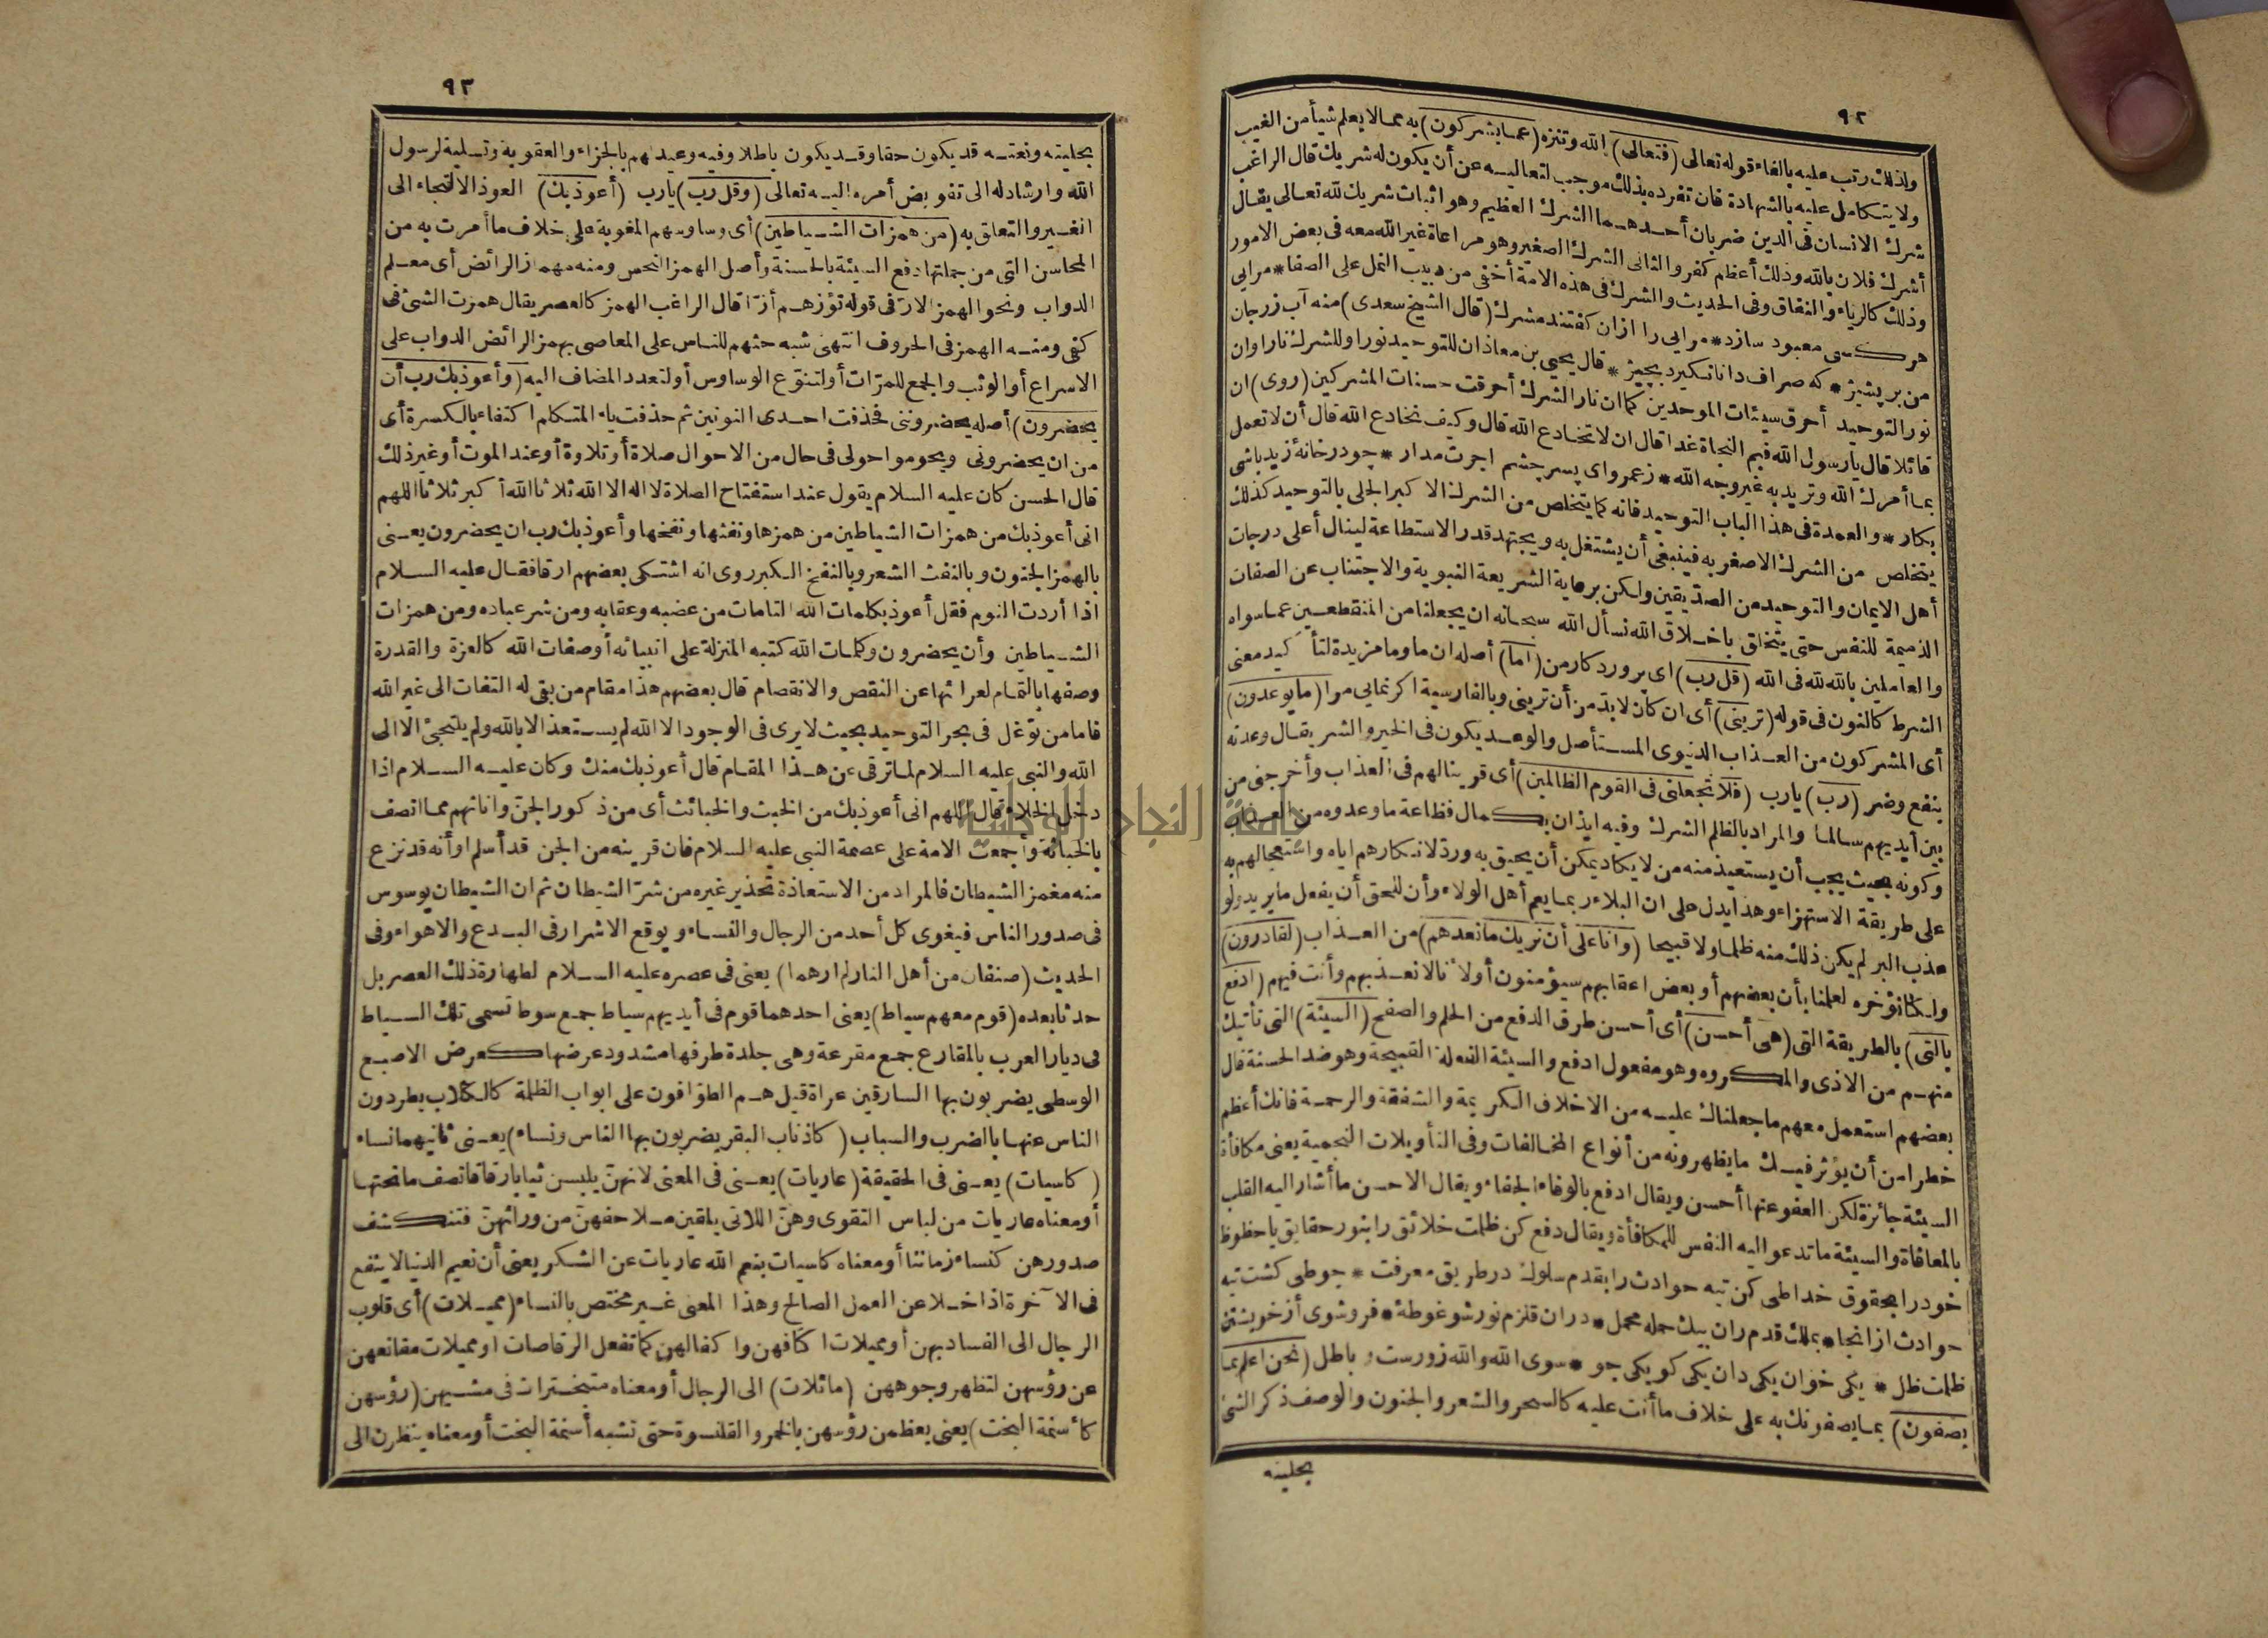 ٩٢
ولذلك رتب عليه بالفاء قوله تعالى (فتعالى) الله وتنزه (عما يشركون) به مما لا يعلم شيأ من الغيب
ولا يتكامل عليه بالشهادة فان تفرده بذلك موجب لتعاليه عن أن يكون له شريك قال الراغب
شرك الانسان فى الدين ضربان أحدهما الشرك العظيم وهو اثبات شريك لله تعالى يقال
أشرك فلان بالله وذلك أعظم كفر والثانى الشرك الصغير وهو مراعاة غير الله معه فى بعض الامور
وذلك كالرياء والنفاق وفى الحديث والشرك فى هذه الامة أخفى من دبيب النمل على الصفا * مرايى
هر كسى معبود سازد * مرايى را ازان كفتند مشرك (قال الشيخ سعدى) منه آب زرجان
من بر پشيز * كه صراف دانا نكيرد بچيز * قال يحيى بن معاذ ان للتوحيد نورا وللشرك نارا وان
نور التوحيد أحرق سيئات الموحدين كما ان نار الشرك أحرقت حسنات المشركين (روى) ان
قائلا قال يا رسول الله فيم النجاة غدا قال ان لا تخادع الله قال وكيف نخادع الله قال أن لا تعمل
بما أمرك الله وتريد به غير وجه الله * زعمرو اى پسر چشم اجرت مدار * چو در خانۀ زيد باشى
بكار * والعمدة فى هذا الباب التوحيد فانه كما يتخلص من الشرك الاكبر الجلى بالتوحيد كذلك
يتخلص من الشرك الاصغر به فينبغى أن يشتغل به ويجتهد قدر الاستطاعة لينال أعلى درجات
أهل الايمان والتوحيد من الصديقين ولكن برعاية الشريعة النبوية والاجتناب عن الصفات
الذميمة للنفس حتى يتخلق باخلاق الله نسأل الله سبحانه ان يجعلنا من المنقطعين عما سواه
والعاملين بالله لله فى الله (قل رب) اى پروردكار من (اما) أصله ان ما وما مزيدة لتأكيد معنى
الشرط كالنون فى قوله (ترينى) أى ان كان لابد من أن ترينى وبالفارسية اكر نمايى مرا (ما يوعدون)
أى المشركون من العذاب الدنيوى المستأصل والوعد يكون فى الخير والشر يقال وعدته
بنفع وضر (رب) يا رب (فلا تجعلنى فى القوم الظالمين) أى قرينا لهم فى العذاب وأخرجنى من
بين أيديهم سالما والمراد بالظلم الشرك وفيه ايذان بكمال فظاعة ما وعدوه من العذاب
وكونه بحيث يجب أن يستعيذ منه من لا يكاد يمكن أن يحيق به ورد لانكارهم اياه واستعجالهم به
على طريقة الاستهزاء وهذا يدل على ان البلاء ربما يعم أهل الولاء وأن للحق أن يفعل ما يريد ولو
عذب البر لم يكن ذلك منه ظلما ولا قبيحا (وانا على أن نريك ما نعدهم) من العذاب (لقادرون)
ولكنا نؤخره لعلمنا بأن بعضهم أو بعض اعقابهم سيؤمنون أو لانا لا نعذبهم وأنت فيهم (ادفع
بالتى) بالطريقة التى (هى أحسن) أى أحسن طرق الدفع من الحلم والصفح (السيئة) التى تأتيك
منهم من الاذى والمكروه وهو مفعول ادفع والسيئة الفعلة القبيحة وهو ضد الحسنة قال
بعضهم استعمل معهم ما جعلناك عليه من الاخلاق الكريمة والشفقة والرحمة فانك أعظم
خطرا من أن يؤثر فيك ما يظهرونه من أنواع المخالفات وفى التأويلات النجمية يعنى مكافأة
السيئة جائزة لكن العفو عنها أحسن ويقال ادفع بالوفاء الجفاء ويقال الاحسن ما أشار اليه القلب
بالمعافاة والسيئة ما تدعو اليه النفس للمكافأة ويقال دفع كن ظلمت خلائق را بنور حقايق يا حظوظ
خود را بحقوق خدا طى كن تيه حوادث را بقدم سلوك در طريق معرفت * چو طى كشت تيه
حوادث از انجا * بملك قدم ران بيك حمله محمل * دران قلزم نور شو غوطۀ * فرو شوى أز خويشتن
ظلمت ظل * يكى خوان يكى دان يكى كو يكى جو * سوى الله والله زورست وباطل (نحن اعلم بما
يصفون) بما يصفونك به على خلاف ما أنت عليه كالسحر والشعر والجنون والوصف ذكر الشئ
بحليته
٩٣
بحليته ونعته قد يكون حقا وقد يكون باطلا وفيه وعيد لهم بالجزاء والعقوبة وتسلية لرسول
الله وارشاد له الى تفويض أمره اليه تعالى (وقل رب) يا رب (أعوذ بك) العوذ الالتجاء الى
الغير والتعلق به (من همزات الشياطين) أى وساوسهم المغوية على خلاف ما أمرت به من
المحاسن التى من جملتها دفع السيئة بالحسنة وأصل الهمز النخس ومنه مهماز الرائض أى معلم
الدواب ونحو الهمز الازّ فى قوله تؤزهم أزّا قال الراغب الهمز كالعصر يقال همزت الشئ فى
كفى ومنه الهمز فى الحروف انتهى شبه حثهم للناس على المعاصى بهمز الرائض الدواب على
الاسراع أو الوثب والجمع للمرّات أو لتنوّع الوساوس أو لتعدد المضاف اليه (وأعوذ بك رب أن
يحضرون) أصله يحضروننى فحذفت احدى النونين ثم حذفت ياء المتكلم اكتفاء بالكسرة أى
من ان يحضرونى ويحوموا حولى فى حال من الاحوال صلاة أو تلاوة أو عند الموت أو غير ذلك
قال الحسن كان عليه السلام يقول عند استفتاح الصلاة لا اله الا الله ثلاثا الله أكبر ثلاثا اللهم
انى أعوذ بك من همزات الشياطين من همزها ونفثها ونفخها وأعوذ بك رب ان يحضرون يعنى
بالهمز الجنون وبالنفث الشعر وبالنفخ الكبر روى انه اشتكى بعضهم ارقا فقال عليه السلام
اذا أردت النوم فقل أعوذ بكلمات الله التامات من غضبه وعقابه ومن شر عباده ومن همزات
الشياطين وأن يحضرون وكلمات الله كتبه المنزلة على انبيائه أو صفات الله كالعزة والقدرة
وصفها بالتمام لعرائها عن النقص والانفصام قال بعضهم هذا مقام من بقى له التفات الى غير الله
فاما من توّغل فى بحر التوحيد بحيث لا يرى فى الوجود الا الله لم يستعذ الا بالله ولم يلتجئ الا الى
الله والنبى عليه السلام لما ترقى عن هذا المقام قال أعوذ بك منك وكان عليه السلام اذا
دخل الخلاء قال اللهم انى أعوذ بك من الخبث والخبائث أى من ذكور الجنّ واناثهم مما اتصف
بالخباثة وأجمعت الامة على عصمة النبى عليه السلام فان قرينه من الجن قد أسلم او أنه قد نزع
منه مغمز الشيطان فالمراد من الاستعاذة تحذير غيره من شرّ الشيطان ثم ان الشيطان يوسوس
فى صدور الناس فيغوى كل أحد من الرجال والنساء ويوقع الاشرار فى البدع والاهواء وفى
الحديث (صنفان من أهل النار لم ارهما) يعنى فى عصره عليه السلام لطهارة ذلك العصر بل
حدثا بعده (قوم معهم سياط) يعنى احدهما قوم فى أيديهم سياط جمع سوط تسمى تلك السياط
فى ديار العرب بالمقارع جمع مقرعة وهى جلدة طرفها مشدود عرضها كعرض الاصبع
الوسطى يضربون بها السارقين عراة قيل هم الطوّافون على ابواب الظلمة كالكلاب يطردون
الناس عنها بالضرب والسباب (كاذناب البقر يضربون بها الناس ونساء) يعنى ثانيهما نساء
(كاسيات) يعنى فى الحقيقة (عاريات) يعنى فى المعنى لانهنّ يلبسن ثيابا رقاقا تصف ما تحتها
أو معناه عاريات من لباس التقوى وهنّ اللاتى يلقين ملاحفهنّ من ورائهنّ فتنكشف
صدورهن كنساء زماننا أو معناه كاسيات بنعم الله عاريات عن الشكر يعنى أن نعيم الدنيا لا ينفع
فى الآخرة اذا خلا عن العمل الصالح وهذا المعنى غير مختص بالنساء (مميلات) أى قلوب
الرجال الى الفساد بهن أو مميلات اكتافهن واكفالهن كما تفعل الرقاصات او مميلات مقانعهن
عن رؤسهن لتظهر وجوههن (مائلات) الى الرجال أو معناه متبخترات فى مشيهن (رؤسهن
كأسنمة البخت) يعنى يعظمن رؤسهن بالخمر والقلنسوة حتى تشبه أسنمة البخت أو معناه ينظرن الى
جامعة النجاح الوطنية